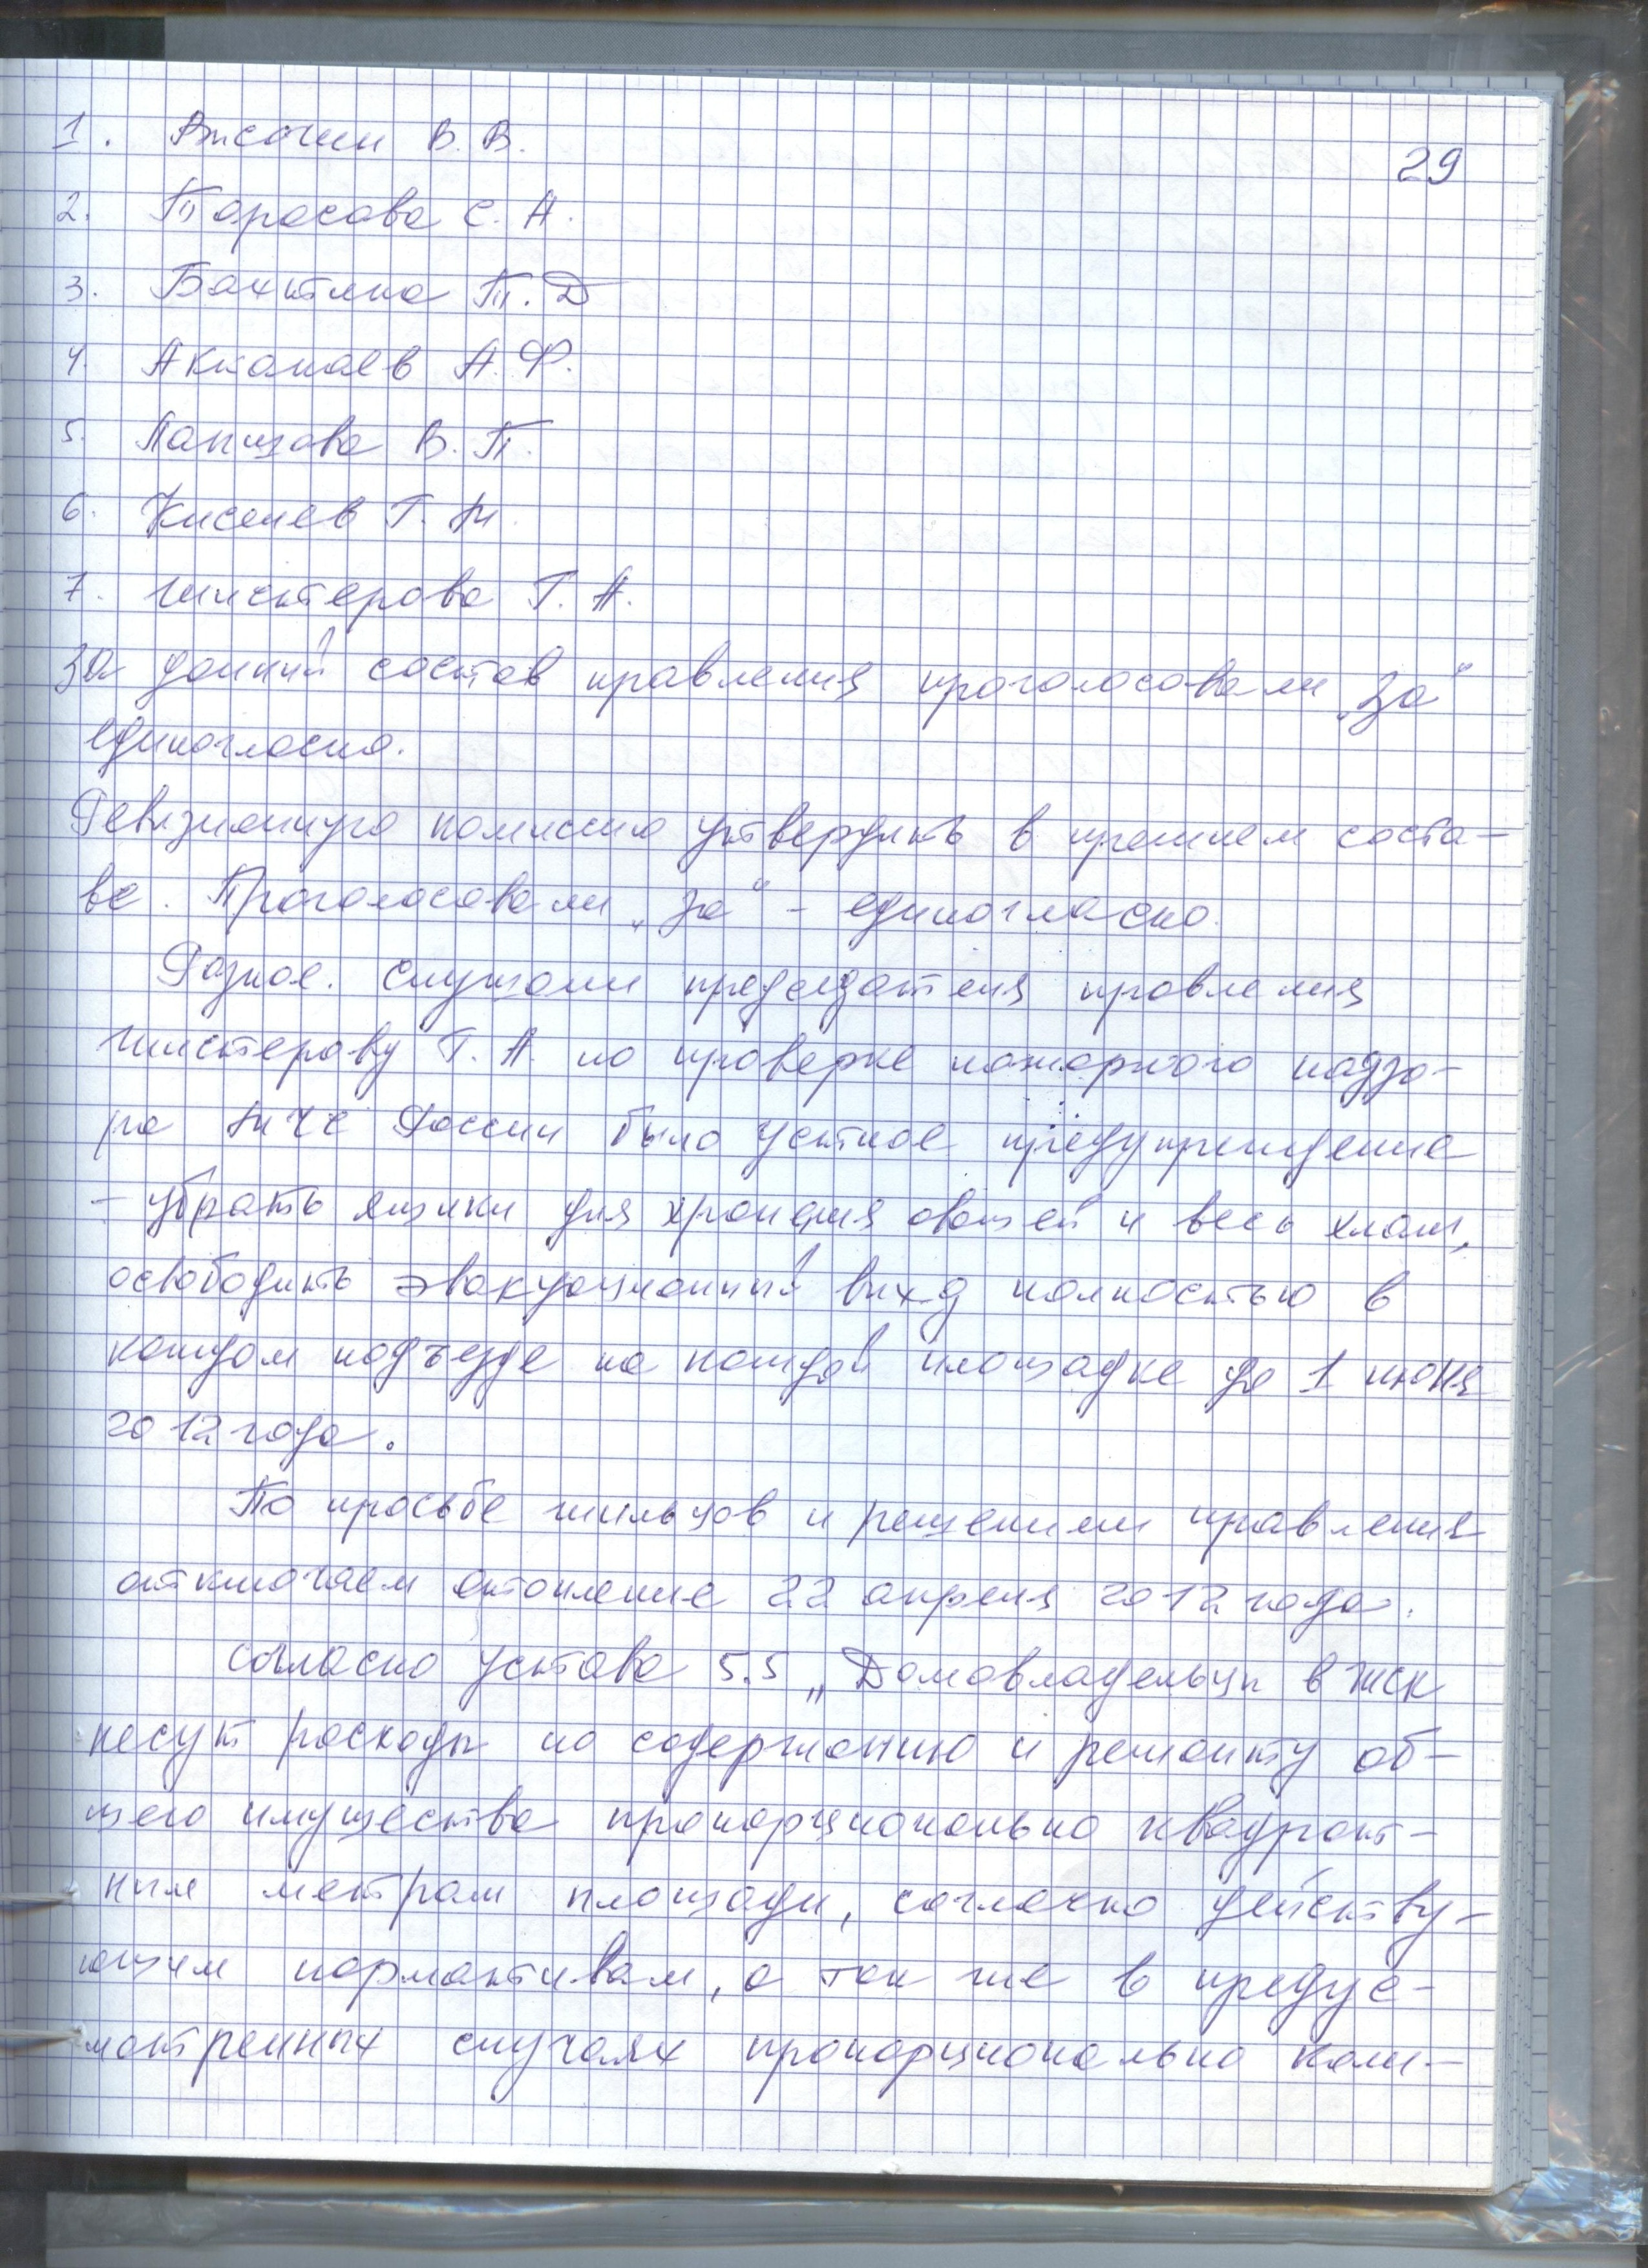 29
1. В. В.
2. Тарасова С. А.
3. Т. Д
4. А. Ф.
5. В. П.
6. Киселев Г. М.
7. Г. А.
За данный состав правления проголосовали „За"
единогласно.
Ревизионную комиссию утвердить в прежнем соста-
ве. Проголосовали „за" - единогласно.
Разное. Слушали председателя правления
Г. А. по проверке пожарного надзо-
ра МЧС России было устное предупреждение
- убрать ящики для хранения овощей и весь хлам,
освободить эвакуационный выход полностью в
каждом подъезде на каждой площадке до 1 июня
2012 года.
По просьбе жильцов и решением правления
отключаем отопление 22 апреля 2012 года.
Согласно Устава 5.5 „Домовладельцы в ЖСК
несут расходы по содержанию и ремонту об-
щего имущества пропорционально квадрат-
ным метрам площади, согласно действу-
ющим нормативам, а так же в предус-
мотренных случаях пропорционально коли-